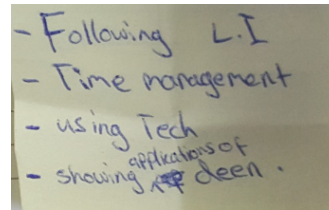 - Following L.I
- Time management
- using Tech
- showing applications of deen.